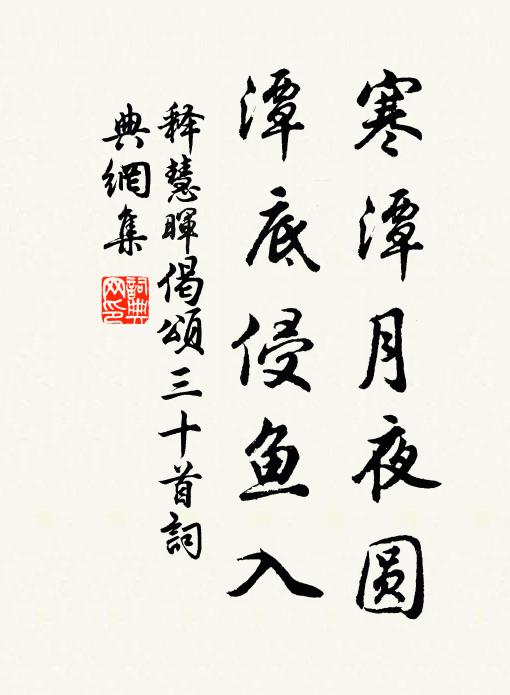 寒潭月夜圆
潭底侵鱼入
释慧晖偈颂三十首词
典網集
詞典
网印